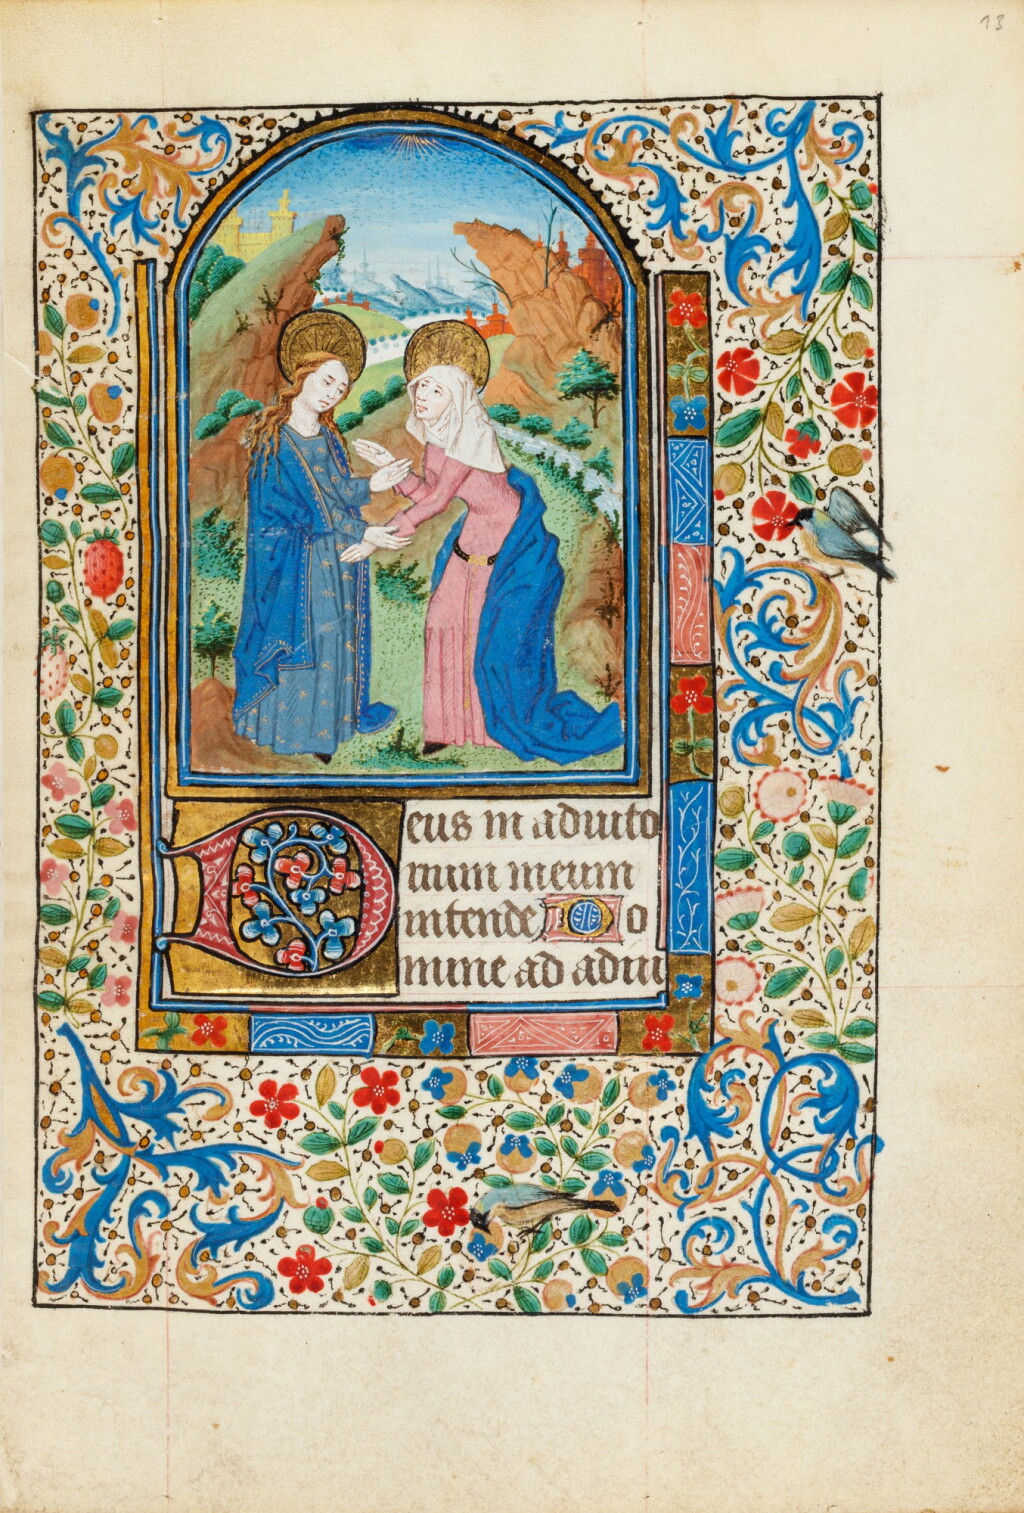 13
Deus in adiuto
rium meum
intende o
mine ad adiu